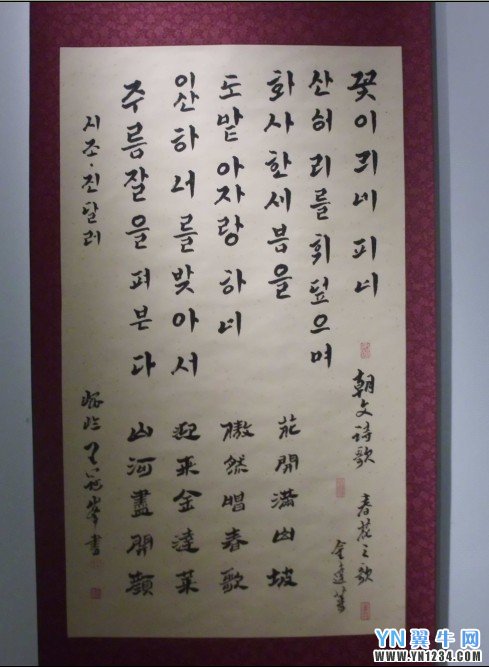 꽃이 픠네 피네
산허리를 휘덮으며
화사한 세봄을
도맡아 자랑하네
이산하 너를 맞아서
주름잘을 펴본다
시조·진달래
朝文詩歌 春花之歌
金達萊
花開滿山坡
傲然唱春歌
迎來金達萊
山河盡開顔
峯書
YN翼牛网
WWW.YN1234.COM